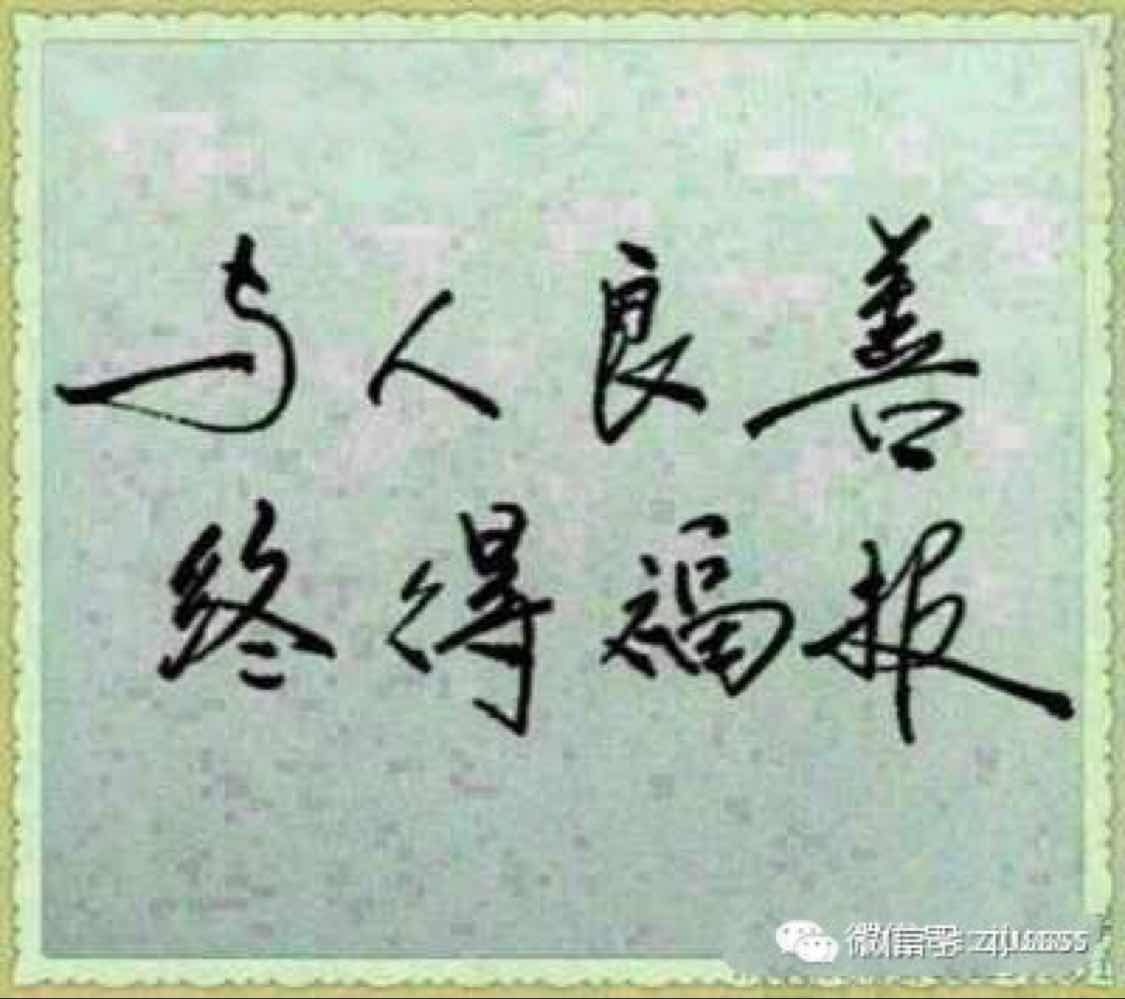 与人良善
终得福报
微信号: